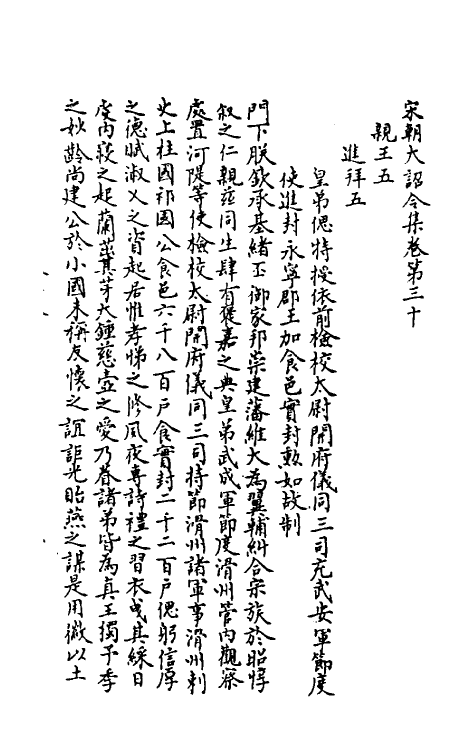 宋朝大詔令集卷第三十
親王五
進拜五
皇弟偲特授依前檢校太尉開府儀同三司充武安軍節度
使進封永寧郡王加食邑實封勲如故制
門下朕欽承基緒丕御家邦崇建藩維大為翼輔糾合宗族於昭惇
叙之仁親茲同生肆有褒嘉之典皇弟武成軍節度滑州管內觀察
處置河隄等使檢校太尉開府儀同三司持節滑州諸軍事滑州刺
史上柱國祁國公食邑六千八百戶食實封二千二百戶偲躬信厚
之德賦淑乂之資起居惟孝悌之修風夜專詩禮之習衣曳其綵日
度內寢之起蘭茁其芽大鍾慈壼之愛乃眷諸弟皆為真王獨予季
之妙齡尚建公於小國未稱友懷之誼詎光貽燕之謀是用徹以土